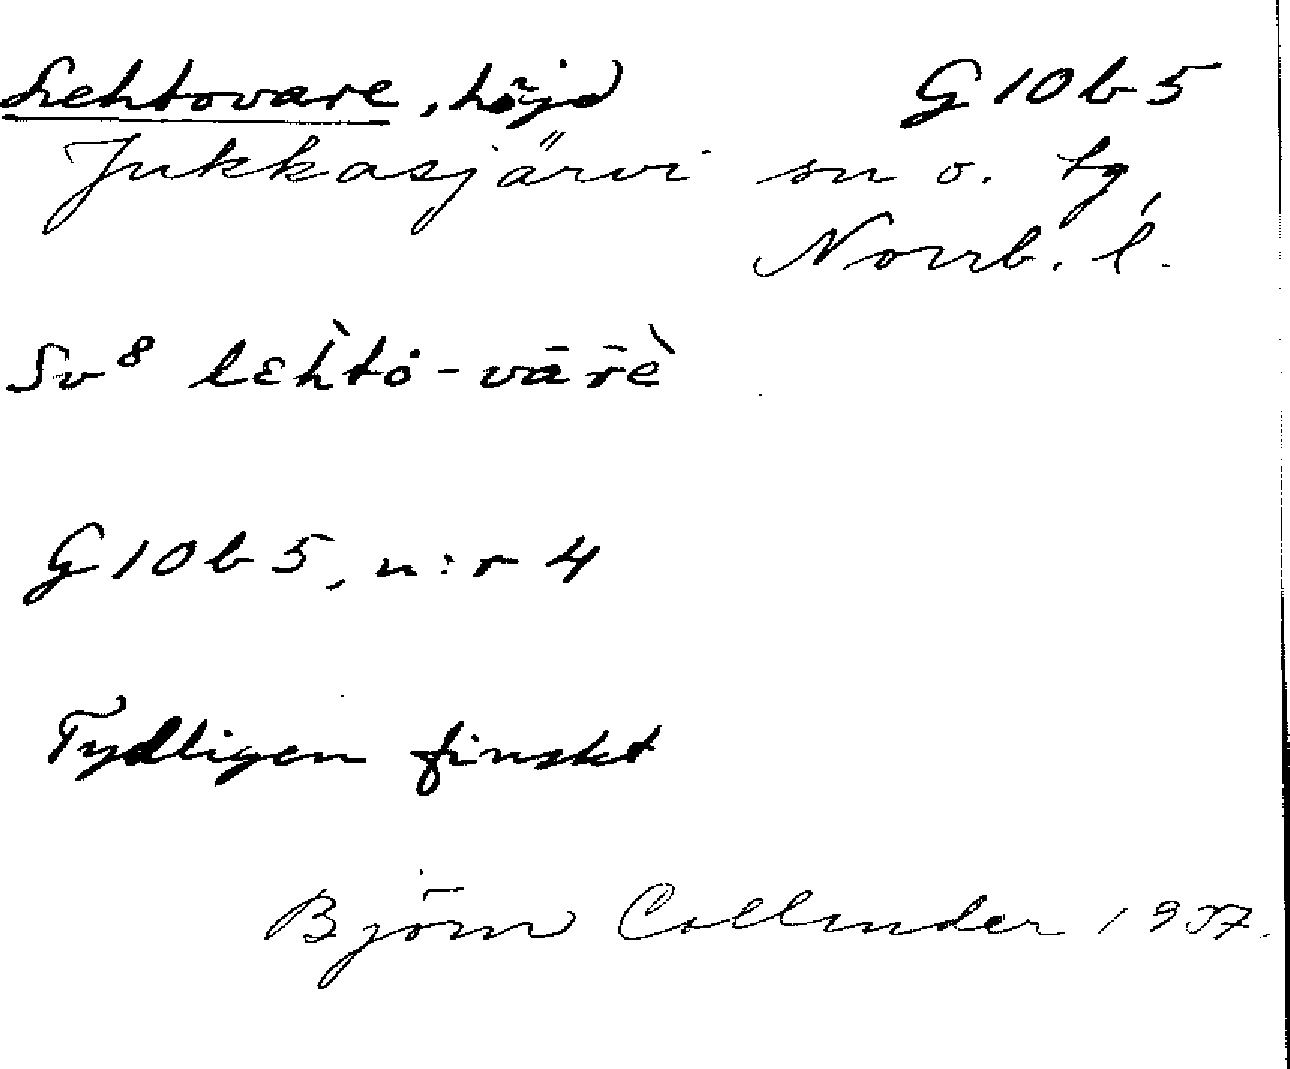 Lehtovare, höjd G 10 b 5
Jukkasjärvi sn o. tg,
Norrb. l.
Sv⁸ lɛh̀tȯ-vār̄è
G 10 b 5, n:r 4
Tydligen finskt
Björn Collinder 1937.